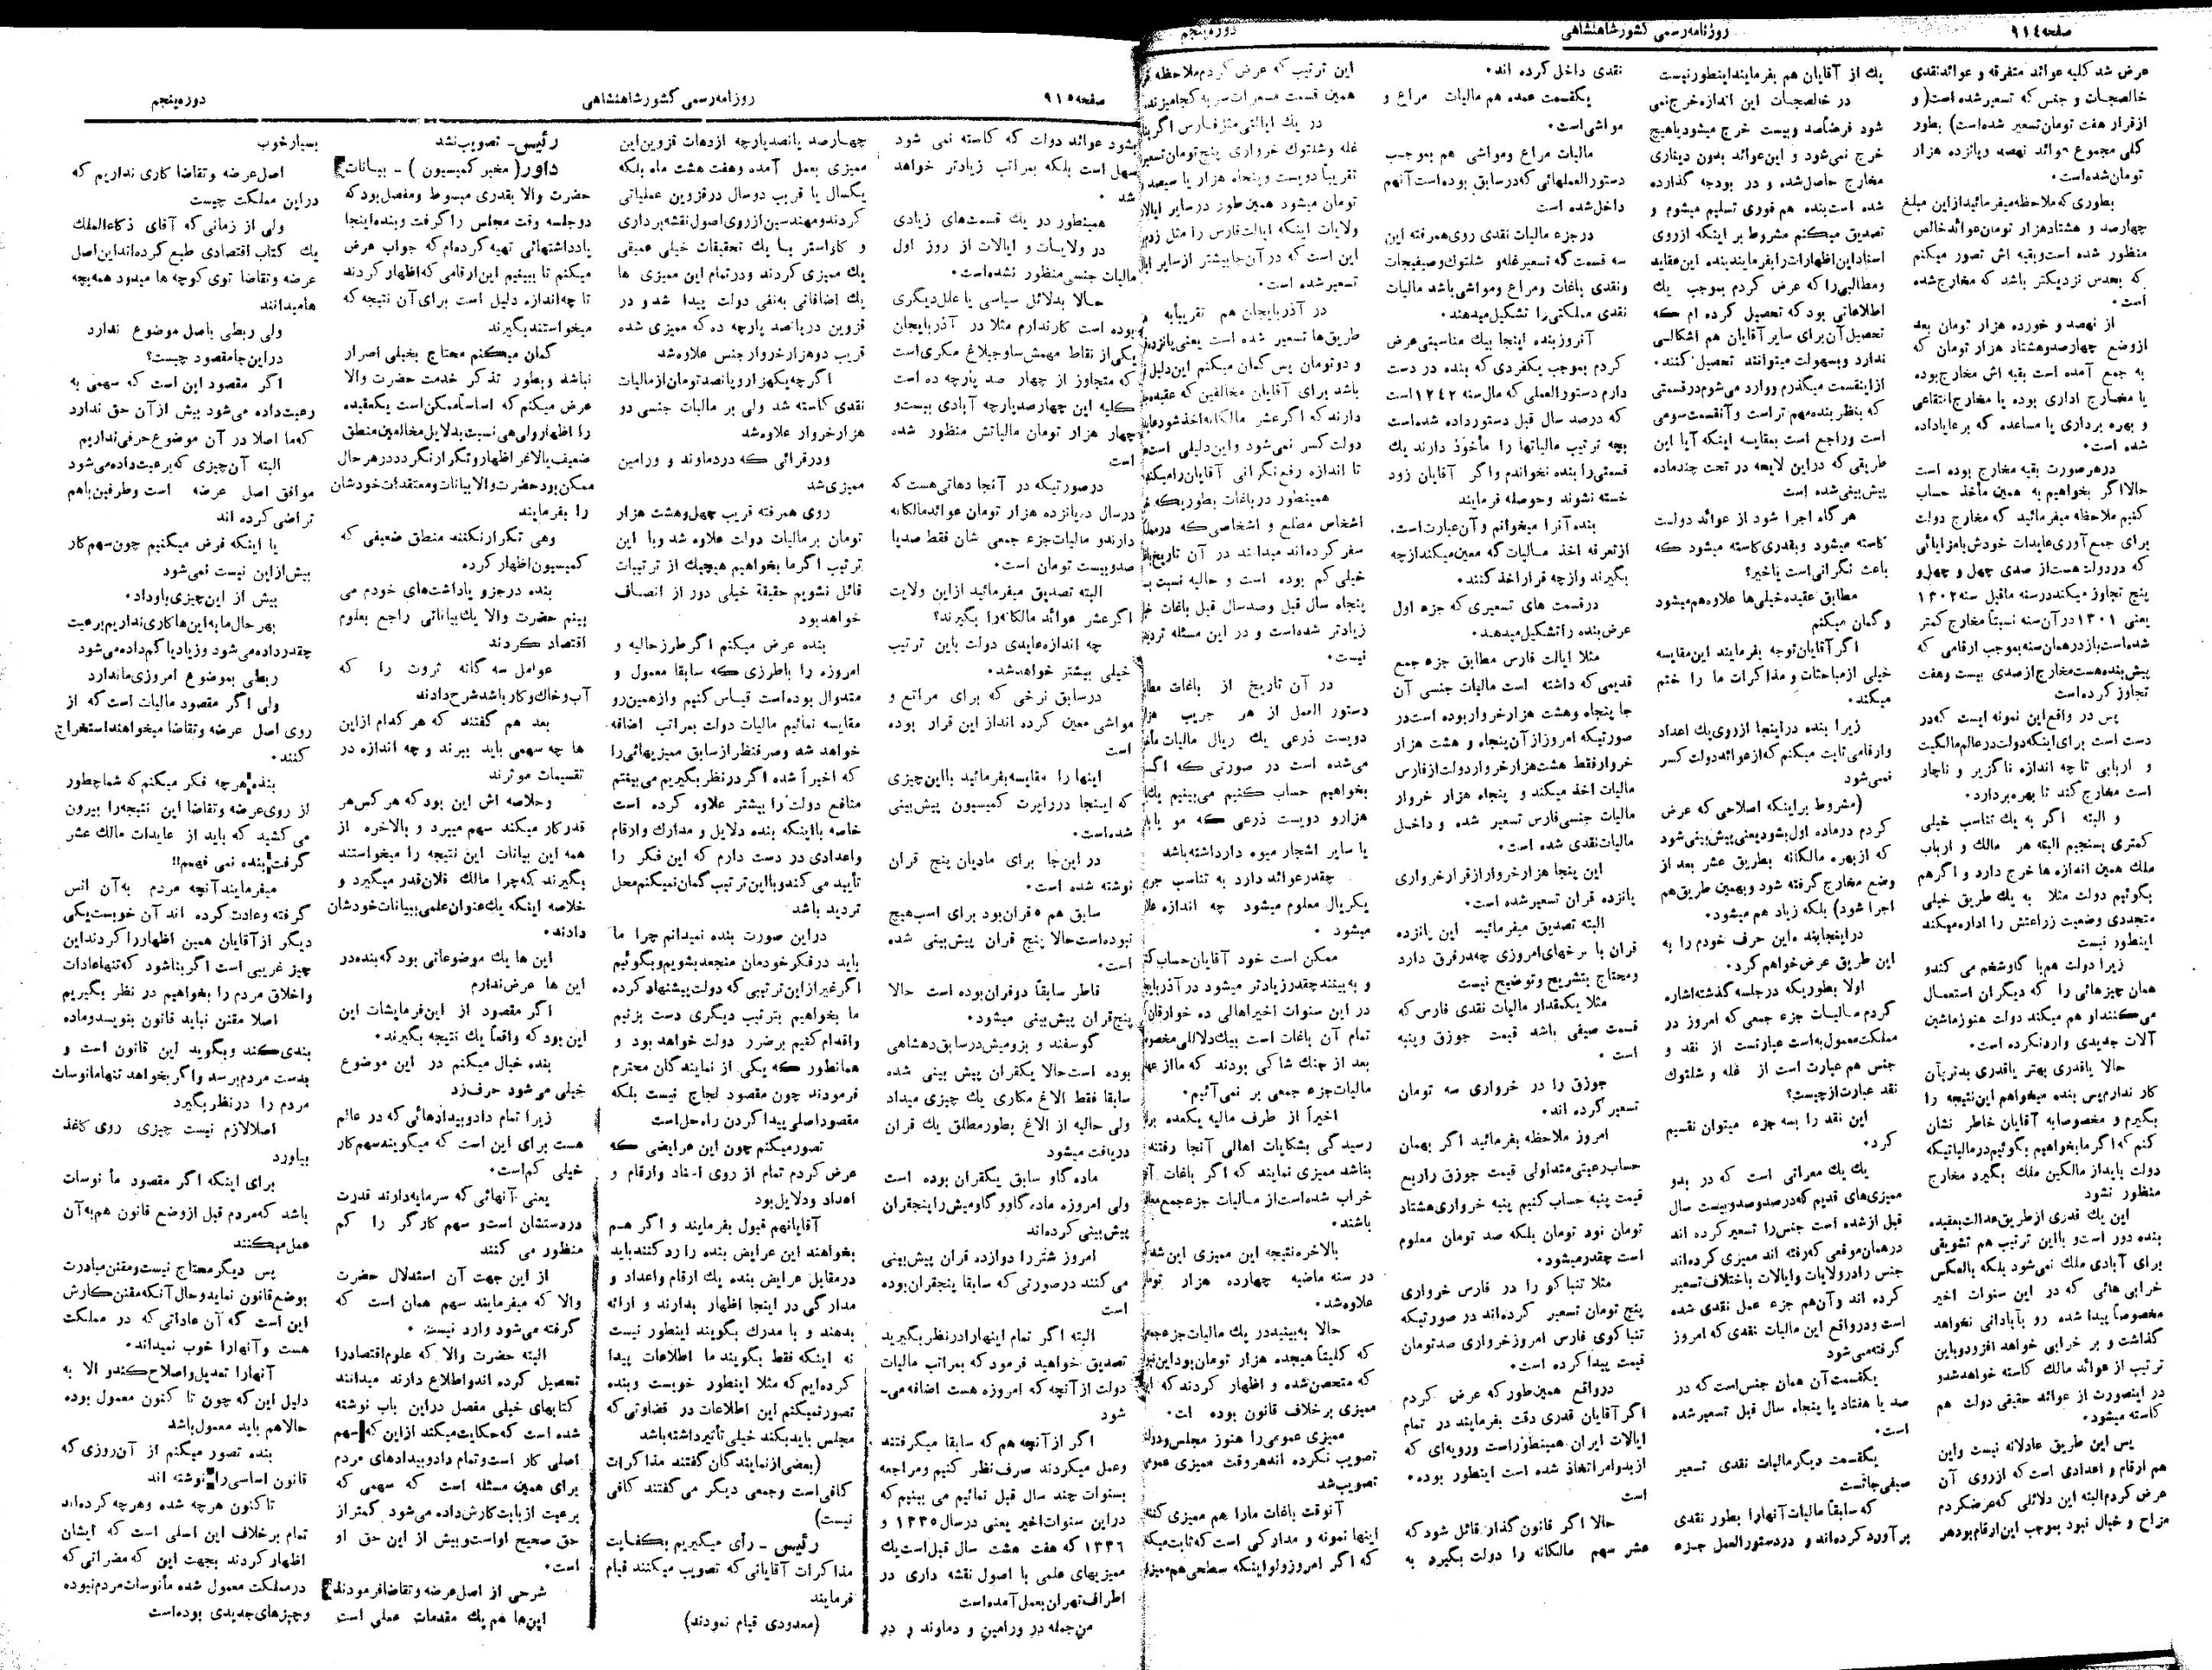 صفحه ۹۱٤
روزنامه رسمی کشور شاهنشاهی
دوره پنجم
عرض شد کلیه عوائد متفرقه و عوائد نقدی
خالصجات و جنس که تسعیر شده است (و
از قرار هفت تومان تسعیر شده است) بطور
کلی مجموع عوائد نهصد و پانزده هزار
تومان شده است.
بطوری که ملاحظه میفرمائید از این مبلغ
چهارصد و هشتاد هزار تومان عوائد خالص
منظور شده است و بقیه اش تصور میکنم
که بحدس نزدیکتر باشد که مخارج شده
است.
از نهصد و خورده هزار تومان بعد
از وضع چهارصد و هشتاد هزار تومان که
به جمع آمده است بقیه اش مخارج بوده
یا مخارج اداری بوده یا مخارج انتفاعی
و بهره برداری یا مساعده که برعایا داده
شده است.
در هر صورت بقیه مخارج بوده است
حالا اگر بخواهیم به همین مأخذ حساب
کنیم ملاحظه میفرمائید که مخارج دولت
برای جمع آوری عایدات خودش با مزایائی
که در دولت هست از صدی چهل و چهل و
پنج تجاوز میکند در سنه ماقبل سنه ۱۳۰۲
یعنی ۱۳۰۱ در آن سنه نسبتاً مخارج کمتر
شده است باز در همان سنه بموجب ارقامی که
پیش بنده هست مخارج از صدی بیست و هفت
تجاوز کرده است
پس در واقع این نمونه ایست که در
دست است برای اینکه دولت در عالم مالکیت
و اربابی تا چه اندازه ناگزیر و ناچار
است مخارج کند تا بهره بردارد.
و البته اگر به یک تناسب خیلی
کمتری بسنجیم البته هر مالک و ارباب
ملک همین اندازه ها خرج دارد و اگر هم
بگوئیم دولت مثلا به یک طریق خیلی
متجددی وضعیت زراعتش را اداره میکند
اینطور نیست
زیرا دولت هم با گاو شخم می کند و
همان چیزهائی را که دیگران استعمال
می کنند او هم میکند دولت هنوز ماشین
آلات جدیدی وارد نکرده است.
حالا یا قدری بهتر یا قدری بدتر بآن
کار ندارم پس بنده میخواهم این نتیجه را
بگیرم و مخصوصا به آقایان خاطر نشان
کنم که اگر ما بخواهیم بگوئیم در مالیاتیکه
دولت باید از مالکین ملک بگیرد مخارج
منظور نشود
این یک قدری از طریق عدالت بعقیده
بنده دور است و با این ترتیب هم تشویقی
برای آبادی ملک نمی شود بلکه بالعکس
خرابی هائی که در این سنوات اخیر
مخصوصاً پیدا شده رو بآبادانی نخواهد
گذاشت و بر خرابی خواهد افزود و باین
ترتیب از عوائد مالک کاسته خواهد شد و
در اینصورت از عوائد حقیقی دولت هم
کاسته میشود.
پس این طریق عادلانه نیست و این
هم ارقام و اعدادی است که از روی آن
عرض کردم البته این دلائلی که عرض کردم
مزاح و خیال نبود بموجب این ارقام بود هر
یک از آقایان هم بفرمایند اینطور نیست
در خالصجات این اندازه خرج نمی
شود فرضاً صد و بیست خرج میشود یا هیچ
خرج نمی شود و این عوائد بدون دیناری
مخارج حاصل شده و در بودجه گذارده
شده است بنده هم فوری تسلیم میشوم و
تصدیق میکنم مشروط بر اینکه از روی
اسناد این اظهارات را بفرمایند بنده این عقاید
و مطالبی را که عرض کردم بموجب یک
اطلاعاتی بود که تحصیل کرده ام که
تحصیل آن برای سایر آقایان هم اشکالی
ندارد و بسهولت میتوانند تحصیل کنند.
از اینقسمت میگذرم و وارد می شوم در قسمتی
که بنظر بنده مهم تر است و آنقسمت سومی
است و راجع است بمقایسه اینکه آیا این
طریقی که در این لایحه در تحت چند ماده
پیش بینی شده است
هر گاه اجرا شود از عوائد دولت
کاسته میشود و بقدری کاسته میشود که
باعث نگرانی است یا خیر؟
مطابق عقیده خیلی ها علاوه هم میشود
و گمان میکنم
اگر آقایان توجه بفرمایند این مقایسه
خیلی از مباحثات و مذاکرات ما را ختم
میکند.
زیرا بنده در اینجا از روی یک اعداد
و ارقامی ثابت میکنم که از عوائد دولت کسر
نمی شود
(مشروط بر اینکه اصلاحی که عرض
کردم در ماده اول بشود یعنی پیش بینی شود
که از بهره مالکانه بطریق عشر بعد از
وضع مخارج گرفته شود و بهمین طریق هم
اجرا شود) بلکه زیاد هم میشود.
در اینجا بنده این حرف خودم را به
این طریق عرض خواهم کرد.
اولا بطوریکه در جلسه گذشته اشاره
کردم مالیات جزء جمعی که امروز در
مملکت معمول به است عبارتست از نقد و
جنس هم عبارت است از غله و شلتوک
نقد عبارت از چیست؟
این نقد را بسه جزء میتوان تقسیم
کرد.
یک یک معرائی است که در بدو
ممیزی های قدیم که در صد و صد و بیست سال
قبل از شده است جنس را تسعیر کرده اند
در همان موقعی که رفته اند ممیزی کرده اند
جنس را در ولایات و ایالات باختلاف تسعیر
کرده اند و آن هم جزء عمل نقدی شده
است و در واقع این مالیات نقدی که امروز
گرفته می شود
یکقسمت آن همان جنس است که در
صد یا هفتاد یا پنجاه سال قبل تسعیر شده
است.
یکقسمت دیگر مالیات نقدی تسعیر
صیفی جات است
که سابقاً مالیات آنها را بطور نقدی
بر آورد کرده اند و در دستور العمل جزء
نقدی داخل کرده اند.
یکقسمت عمده هم مالیات مراع و
مواشی است.
مالیات مراع و مواشی هم بموجب
دستور العملهائی که در سابق بوده است آنهم
داخل شده است
در جزء مالیات نقدی روی همرفته این
سه قسمت که تسعیر غله و شلتوک و صیفیجات
و نقدی باغات و مراع و مواشی باشد مالیات
نقدی مملکتی را تشکیل میدهند.
آنروز بنده اینجا بیک مناسبتی عرض
کردم بموجب یکفردی که بنده در دست
دارم دستور العملی که مال سنه ۱۲٤۲ است
که در صد سال قبل دستور داده شده است
بچه ترتیب مالیاتها را مأخوذ دارند یک
قسمتی را بنده نخواندم و اگر آقایان زود
خسته نشوند و حوصله فرمایند
بنده آنرا میخوانم و آن عبارت است.
از تعرفه اخذ مالیات که معین میکند از چه
بگیرند و از چه قرار اخذ کنند.
در قسمت های تسعیری که جزء اول
عرض بنده را تشکیل میدهد.
مثلا ایالت فارس مطابق جزء جمع
قدیمی که داشته است مالیات جنسی آن
جا پنجاه و هشت هزار خروار بوده است در
صورتیکه امروز از آن پنجاه و هشت هزار
خروار فقط هشت هزار خروار دولت از فارس
مالیات اخذ میکند و پنجاه هزار خروار
مالیات جنسی فارس تسعیر شده و داخل
مالیات نقدی شده است.
این پنجاه هزار خروار از قرار خرواری
پانزده قران تسعیر شده است.
البته تصدیق میفرمائید این پانزده
قران با نرخهای امروزی چقدر فرق دارد
و محتاج بتشریح و توضیح نیست
مثلا یکمقدار مالیات نقدی فارس که
قسمت صیفی باشد قیمت جوزق و پنبه
است.
جوزق را در خرواری سه تومان
تسعیر کرده اند.
امروز ملاحظه بفرمائید اگر بهمان
حساب رعیتی متداولی قیمت جوزق را ربع
قیمت پنبه حساب کنیم پنبه خرواری هشتاد
تومان نود تومان بلکه صد تومان معلوم
است چقدر میشود.
مثلا تنباکو را در فارس خرواری
پنج تومان تسعیر کرده اند در صورتیکه
تنباکوی فارس امروز خرواری صد تومان
قیمت پیدا کرده است.
در واقع همین طور که عرض کردم
اگر آقایان قدری دقت بفرمایند در تمام
ایالات ایران همینطور است و رویه ای که
از بدو امر اتخاذ شده است اینطور بوده.
است
حالا اگر قانون گذار قائل شود که
عشر سهم مالکانه را دولت بگیرد به
این ترتیب که عرض کردم ملاحظه
همین قسمت مسعرات سر به کجا میزند
در یک ایالتی مثل فارس اگر
غله و شلتوک خرواری پنج تومان تسعیر
تقریباً دویست و پنجاه هزار یا سیصد
تومان میشود همین طور در سایر
ولایات اینکه ایالت فارس را مثل زدم
این است که در آن جا بیشتر از سایر
تسعیر شده است.
در آذربایجان هم تقریباً به
طریق ها تسعیر شده است یعنی پانزده
و دو تومان پس گمان میکنم این دلیل
باشد برای آقایان مخالفین که عقیده
دارند که اگر عشر مالکانه اخذ شود
دولت کسر نمی شود و این دلیلی است
تا اندازه رفع نگرانی آقایان را میکند
همینطور در باغات بطوریکه
اشخاص مطلع و اشخاصی که در
سفر کرده اند میدانند در آن تاریخ
خیلی کم بوده است و حالیه نسبت
پنجاه سال قبل و صد سال قبل باغات
زیادتر شده است و در این مسئله تردید
نیست.
در آن تاریخ از باغات
دستور العمل از هر جریب
دویست ذرعی یک ریال مالیات
می شده است در صورتی که
بخواهیم حساب کنیم می بینیم یک
هزار و دویست ذرعی که مو یا
یا سایر اشجار میوه دار داشته باشد
چقدر عوائد دارد به تناسب
یکریال معلوم میشود چه اندازه
میشود.
ممکن است خود آقایان حساب
و به بینند چقدر زیادتر میشود در
در این سنوات اخیر اهالی ده خوارقان
تمام آن باغات است بیک دلائلی
بعد از جنگ شاکی بودند که ما از
مالیات جزء جمعی بر نمی آئیم.
اخیراً از طرف مالیه یکعده
رسیدگی بشکایات اهالی آنجا رفتند
بناشد ممیزی نمایند که اگر باغات
خراب شده است از مالیات جزء جمع
باشند.
بالاخره نتیجه این ممیزی این شد
در سنه ماضیه چهارده هزار
علاوه شد.
حالا به بینید در یک مالیات جزء
که کلیتاً هیجده هزار تومان بود این
که متحصن شده و اظهار کردند که
ممیزی بر خلاف قانون بوده است.
ممیزی عمومی را هنوز مجلس و
تصویب نکرده اند هر وقت ممیزی
تصویب شد
آنوقت باغات مارا هم ممیزی
اینها نمونه و مدارکی است که ثابت
که اگر امروز ولو اینکه سطحی هم
صفحه ۹۱۵
روزنامه رسمی کشور شاهنشاهی
دوره پنجم
بشود عوائد دولت که کاسته نمی شود
سهل است بلکه بمراتب زیادتر خواهد
شد.
همینطور در یک قسمت های زیادی
در ولایات و ایالات از روز اول
مالیات جنسی منظور نشده است.
حالا بدلائل سیاسی یا علل دیگری
بوده است کار ندارم مثلا در آذربایجان
یکی از نقاط مهمش ساوجبلاغ مکری است
که متجاوز از چهار صد پارچه ده است
کلیه این چهارصد پارچه آبادی بیست و
چهار هزار تومان مالیاتش منظور شده
است
در صورتیکه در آنجا دهاتی هست که
در سال ده پانزده هزار تومان عوائد مالکانه
دارند و مالیات جزء جمعی شان فقط صد یا
صد و بیست تومان است.
البته تصدیق میفرمائید از این ولایت
اگر عشر عوائد مالکانه را بگیرند؟
چه اندازه عایدی دولت باین ترتیب
خیلی بیشتر خواهد شد.
در سابق نرخی که برای مراتع و
مواشی معین کرده اند از این قرار بوده
است
اینها را مقایسه بفرمائید با این چیزی
که اینجا در راپرت کمیسیون پیش بینی
شده است.
در این جا برای مادیان پنج قران
نوشته شده است.
سابق هم ۵ قران بود برای اسب هیچ
نبوده است حالا پنج قران پیش بینی شده
است.
قاطر سابقاً دو قران بوده است حالا
پنج قران پیش بینی میشود.
گوسفند و بز و میش در سابق ده شاهی
بوده است حالا یکقران پیش بینی شده
سابقا فقط الاغ مکاری یک چیزی میداد
ولی حالیه از الاغ بطور مطلق یک قران
دریافت میشود
ماده گاو سابق یکقران بوده است
ولی امروزه ماده گاو و گاومیش را پنجقران
پیش بینی کرده اند
امروز شتر را دوازده قران پیش بینی
می کنند در صورتی که سابقا پنجقران بوده
است
البته اگر تمام اینها را در نظر بگیرید
تصدیق خواهید فرمود که بمراتب مالیات
دولت از آنچه که امروزه هست اضافه می-
شود
اگر از آنچه هم که سابقا میگرفتند
و عمل میکردند صرف نظر کنیم و مراجعه
بسنوات چند سال قبل نمائیم می بینیم که
در این سنوات اخیر یعنی در سال ۱۳۳۵ و
۱۳۳٦ که هفت هشت سال قبل است یک
ممیزیهای علمی با اصول نقشه داری در
اطراف تهران بعمل آمده است
من جمله در ورامین و دماوند و در
چهارصد پانصد پارچه از دهات قزوین این
ممیزی بعمل آمده و هفت هشت ماه بلکه
یکسال یا قریب دو سال در قزوین عملیاتی
کردند و مهندسین از روی اصول نقشه برداری
و کاداستر با یک تحقیقات خیلی عمیقی
یک ممیزی کردند و در تمام این ممیزی ها
یک اضافاتی به نفی دولت پیدا شد و در
قزوین در پانصد پارچه ده که ممیزی شده
قریب دو هزار خروار جنس علاوه شد
اگر چه یکهزار و پانصد تومان از مالیات
نقدی کاسته شد ولی بر مالیات جنسی دو
هزار خروار علاوه شد
و در قرائی که در دماوند و ورامین
ممیزی شد
روی همرفته قریب چهل و هشت هزار
تومان بر مالیات دولت علاوه شد و با این
ترتیب اگر ما بخواهیم هیچیک از ترتیبات
قائل نشویم حقیقة خیلی دور از انصاف
خواهد بود
بنده عرض میکنم اگر طرز حالیه و
امروزه را باطرزی که سابقا معمول و
متداول بوده است قیاس کنیم و از همین رو
مقایسه نمائیم مالیات دولت بمراتب اضافه
خواهد شد و صرفنظر از سابق ممیزیهائی را
که اخیراً شده اگر در نظر بگیریم می بیفتم
منافع دولت را بیشتر علاوه کرده است
خاصه با اینکه بنده دلایل و مدارک و ارقام
و اعدادی در دست دارم که این فکر را
تأیید می کند و با این ترتیب گمان نمیکنم محل
تردید باشد
در این صورت بنده نمیدانم چرا ما
باید در فکر خودمان منجمد بشویم و بگوئیم
اگر غیر از این ترتیبی که دولت پیشنهاد کرده
ما بخواهیم بترتیب دیگری دست بزنیم
و اقدام کنیم بر ضرر دولت خواهد بود و
همانطور که یکی از نمایندگان محترم
فرمودند چون مقصود لجاج نیست بلکه
مقصود اصلی پیدا کردن راه حل است
تصور میکنم چون این عرایضی که
عرض کردم تمام از روی اسناد و ارقام و
اعداد و دلایل بود
آقایانهم قبول بفرمایند و اگر هم
بخواهند این عرایض بنده را رد کنند باید
در مقابل عرایض بنده یک ارقام و اعداد و
مدارکی در اینجا اظهار بدارند و ارائه
بدهند و با مدرک بگویند اینطور نیست
نه اینکه فقط بگویند ما اطلاعات پیدا
کرده ایم که مثلا اینطور خوبست و بنده
تصور نمیکنم این اطلاعات در قضاوتی که
مجلس باید بکند خیلی تأثیر داشته باشد
(بعضی از نمایندگان گفتند مذاکرات
کافی است و جمعی دیگر می گفتند کافی
نیست)
رئیس - رأی میگیریم بکفایت
مذاکرات آقایانی که تصویب میکنند قیام
فرمایند
(معدودی قیام نمودند)
رئیس - تصویب نشد
داور (مخبر کمیسیون) - بیانات
حضرت والا بقدری مبسوط و مفصل بود که
دو جلسه وقت مجلس را گرفت و بنده اینجا
یادداشتهائی تهیه کرده ام که جواب عرض
میکنم تا ببینیم این ارقامی که اظهار کردند
تا چه اندازه دلیل است برای آن نتیجه که
میخواستند بگیرند
گمان میکنم محتاج بخیلی اصرار
نباشد و بطور تذکر خدمت حضرت والا
عرض میکنم که اساساً ممکن است یکعقیده
را اظهار ولی هی نسبت بدلایل مخالفین منطق
ضعیف یا لاغر اظهار و تکرار نگردد در هر حال
ممکن بود حضرت والا بیانات و معتقدات خودشان
را بفرمایند
و هی تکرار نکنند منطق ضعیفی که
کمیسیون اظهار کرده
بنده در جزو یاداشت های خودم می
بینم حضرت والا یک بیاناتی راجع بعلوم
اقتصاد کردند
عوامل سه گانه ثروت را که
آب و خاک و کار باشد شرح دادند
بعد هم گفتند که هر کدام از این
ها چه سهمی باید ببرند و چه اندازه در
تقسیمات موثرند
و خلاصه اش این بود که هر کس هر
قدر کار میکند سهم میبرد و بالاخره از
همه این بیانات این نتیجه را میخواستند
بگیرند که چرا مالک فلان قدر میگیرد و
خلاصه اینکه یک عنوان علمی ببیانات خودشان
دادند.
این ها یک موضوعاتی بود که بنده در
این ها عرض ندارم
اگر مقصود از این فرمایشات این
این بود که واقعاً یک نتیجه بگیرند.
بنده خیال میکنم در این موضوع
خیلی می شود حرف زد
زیرا تمام داد و بیدادهائی که در عالم
هست برای این است که میگویند سهم کار
خیلی کم است.
یعنی آنهائی که سرمایه دارند قدرت
در دستشان است و سهم کارگر را کم
منظور می کنند
از این جهت آن استدلال حضرت
والا که میفرمایند سهم همان است که
گرفته می شود وارد نیست.
البته حضرت والا که علوم اقتصاد را
تحصیل کرده اند و اطلاع دارند میدانند
کتابهای خیلی مفصل در این باب نوشته
شده است که حکایت میکند از این که سهم
اصلی کار است و تمام داد و بیدادهای مردم
برای همین مسئله است که سهمی که
برعیت از بابت کارش داده می شود کمتر از
حق صحیح او است و بیش از این حق او
است.
شرحی از اصل عرضه و تقاضا فرمودند
این ها هم یک مقدمات عملی است
بسیار خوب
اصل عرضه و تقاضا کاری نداریم که
در این مملکت چیست
ولی از زمانی که آقای ذکاءالملک
یک کتاب اقتصادی طبع کرده اند این اصل
عرضه و تقاضا توی کوچه ها میدود همه بچه
ها میدانند
ولی ربطی باصل موضوع ندارد
در این جا مقصود چیست؟
اگر مقصود این است که سهمی به
رعیت داده می شود بیش از آن حق ندارد
که ما اصلا در آن موضوع حرفی نداریم
البته آن چیزی که برعیت داده می شود
موافق اصل عرضه است و طرفین باهم
تراضی کرده اند
یا اینکه فرض میکنیم چون سهم کار
بیش از این نیست نمی شود
بیش از این چیزی باو داد.
بهر حال ما به این ها کاری نداریم برعیت
چقدر داده می شود و زیاد یا کم داده می شود
ربطی بموضوع امروزی ما ندارد
ولی اگر مقصود مالیات است که از
روی اصل عرضه و تقاضا میخواهند استخراج
کنند.
بنده هرچه فکر میکنم که شما چطور
از روی عرضه و تقاضا این نتیجه را بیرون
می کشید که باید از عایدات مالک عشر
گرفت بنده نمی فهمم!!
میفرمایند آنچه مردم به آن انس
گرفته و عادت کرده اند آن خوبست یکی
دیگر از آقایان همین اظهار را کردند این
چیز غریبی است اگر بنا شود که تنها عادات
و اخلاق مردم را بخواهیم در نظر بگیریم
اصلا مقنن نباید قانون بنویسد و ماده
بندی کند و بگوید این قانون است و
بدست مردم برسد و اگر بخواهد تنها مانوسات
مردم را در نظر بگیرد
اصلا لازم نیست چیزی روی کاغذ
بیاورد
برای اینکه اگر مقصود مأنوسات
باشد که مردم قبل از وضع قانون هم به آن
عمل میکنند
پس دیگر محتاج نیست و مقنن مبادرت
بوضع قانون نماید و حال آنکه مقنن کارش
این است که آن عاداتی که در مملکت
هست و آنها را خوب نمیداند.
آنها را تعدیل و اصلاح کند و الا به
دلیل این که چون تا کنون معمول بوده
حالا هم باید معمول باشد
بنده تصور میکنم از آن روزی که
قانون اساسی را نوشته اند
تا کنون هرچه شده و هرچه کرده اند
تمام بر خلاف این اصلی است که ایشان
اظهار کردند بجهت این که مضراتی که
در مملکت معمول شده مأنوسات مردم نبوده
و چیزهای جدیدی بوده است